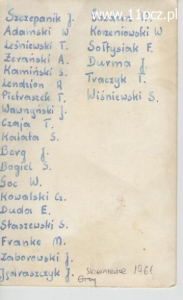 www.11pcz.pl
Szczepanik J.
Adamski W.
Leśniewski T.
Żerański A.
Kamiński S.
Lendzion R.
Pietraszek T.
Wawrzyński J.
Czaja T.
Kalata S.
Berg J.
Bogiel S.
Soć W.
Kowalski Cz.
Duda E.
Staszewski S.
Franke M.
Zaborowski J.
Jędraszczyk J.
Korzeniowski W
Sołtysiak F.
Durma J.
Traczyk T.
Wiśniewski S.
1961